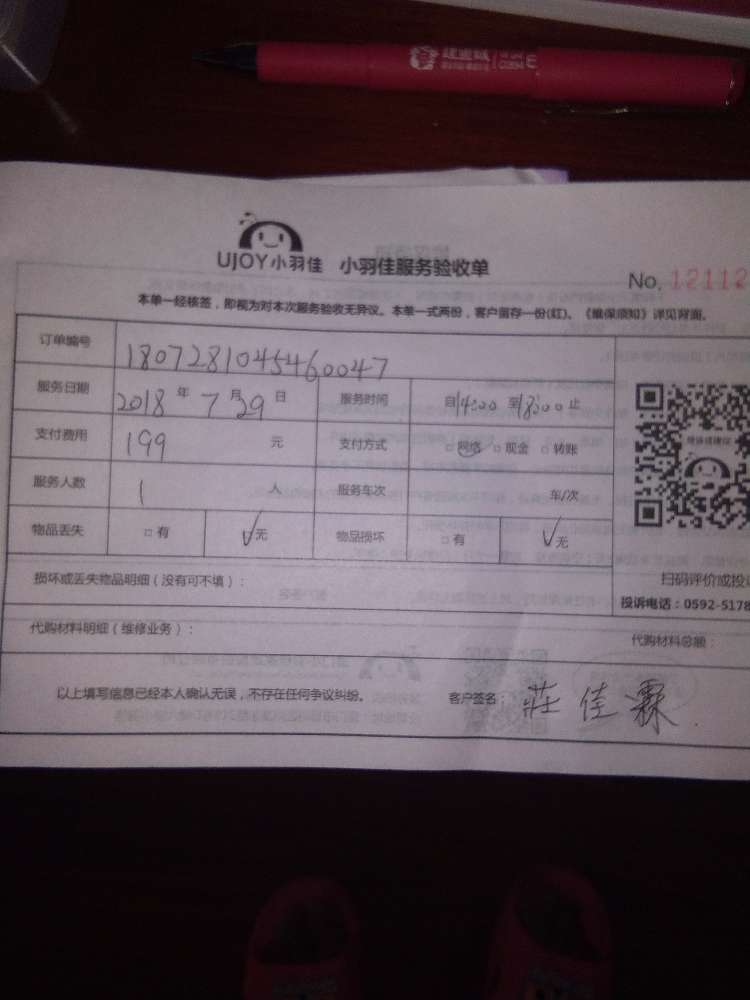 UJOY小羽佳 小羽佳服务验收单
No. 12112
本单一经核签，即视为对本次服务验收无异议。本单一式两份，客户留存一份(红)。《维保须知》详见背面。
订单编号 1807281045460047
服务日期 2018 年 7 月 29 日 服务时间 自14:00 至18:00止
支付费用 199 元 支付方式 □网络 □现金 □转账
服务人数 1 人 服务车次 车/次
物品丢失 □有 √无 物品损坏 □有 √无
损坏或丢失物品明细（没有可不填）：
扫码评价或投诉
投诉电话：0592-5178
代购材料明细（维修业务）： 代购材料总额：
以上填写信息已经本人确认无误，不存在任何争议纠纷。 客户签名：莊佳霖